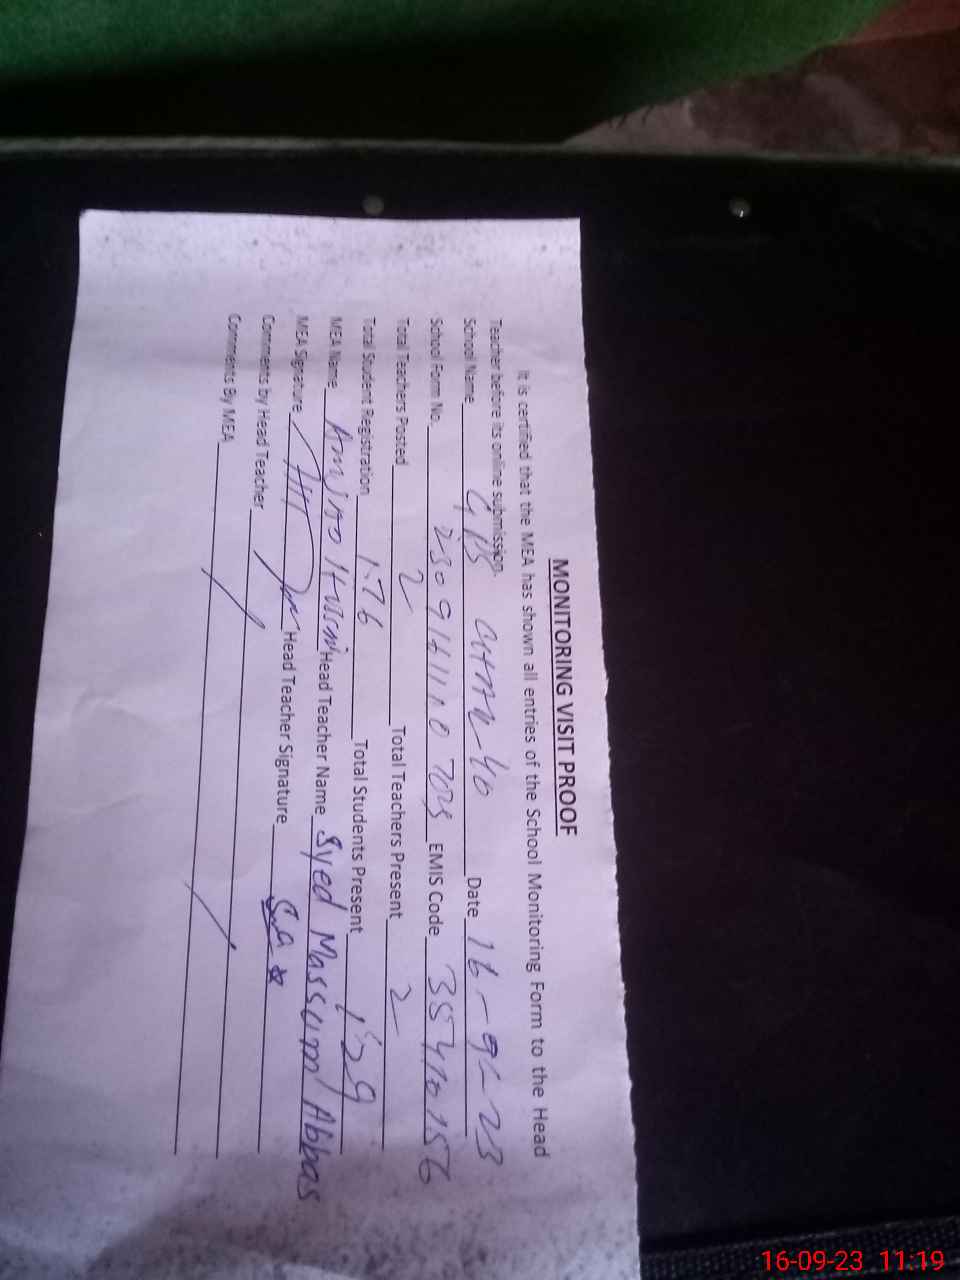 MONITORING VISIT PROOF
It is certified that the MEA has shown all entries of the School Monitoring Form to the Head
Teacher before its online submission.
School Name GPS Date 16-9-23
School Form No. EMIS Code 35410156
Total Teachers Posted 2 Total Teachers Present 2
Total Student Registration 176 Total Students Present 129
MEA Name Head Teacher Name Syed Massum Abbas
MEA Signature Head Teacher Signature
Comments by Head Teacher
Comments By MEA
16-09-23 11:19